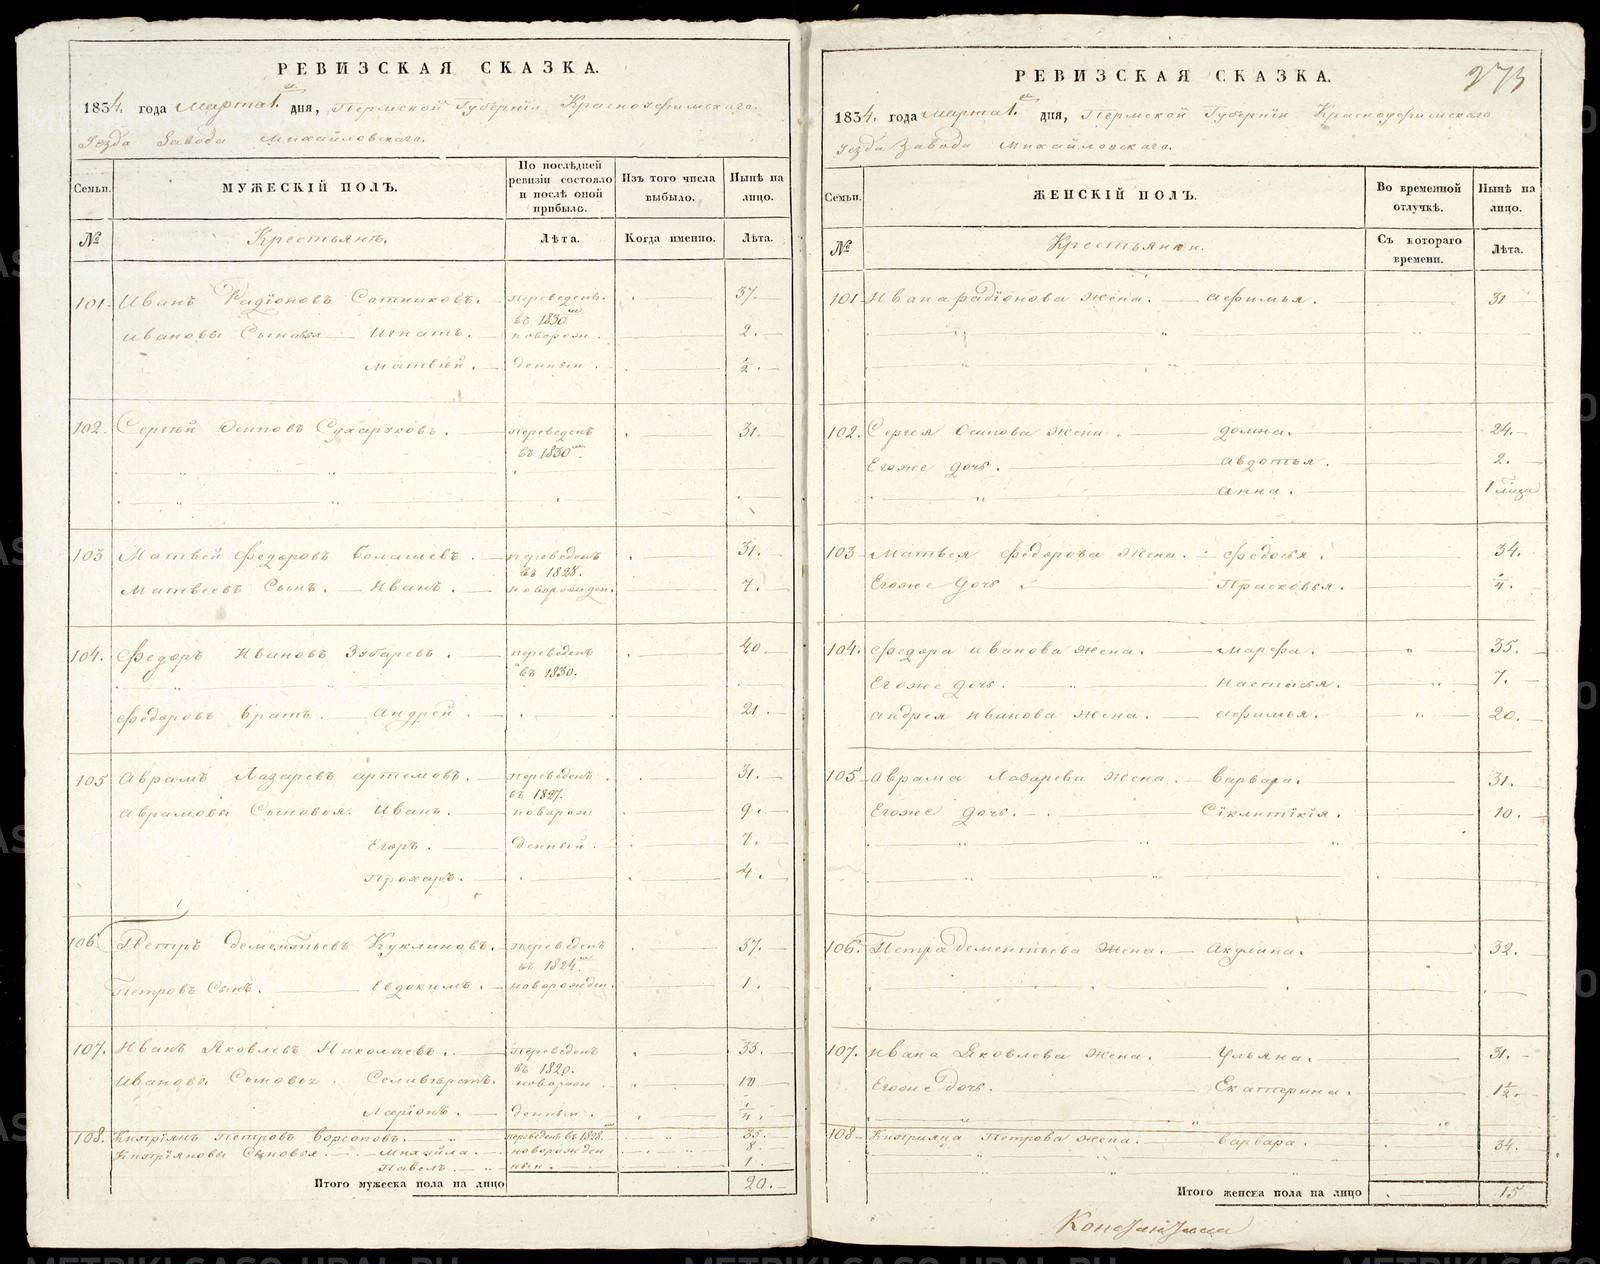 РЕВИЗСКАЯ СКАЗКА.
1834. года Марта 1. дня, Пермской Губернiи Красноуфимскаго
Уѣзда Завода Михайловскаго.
Семьи. МУЖЕСКIЙ ПОЛЪ. По послѣдней ревизiи состояло и послѣ оной прибыло. Изъ того числа выбыло. Нынѣ на лицо.
№ Крестьянъ. Лѣта. Когда именно. Лѣта.
101 Иванъ Радiоновъ Сотниковъ. переведенъ 37
въ 1830
Ивановы Сыновья Игнатъ. новорож 2.
Матвѣй. денныи ½.
102. Сергѣй Осиповъ Сухаряковъ. переведенъ 31.
въ 1830
103 Матвей Федоровъ переведенъ 31.
въ 1828.
Матвеевъ Сынъ. Иванъ. новорожден. 7.
104. Федоръ Ивановъ Зубаревъ. переведенъ 40
въ 1830.
Федоровъ братъ. Андрей. 21.
105 Аврамъ Лазаревъ Артемовъ. переведенъ 31.
въ 1827.
Аврамовы Сыновья. Иванъ. новорож 9.
Егоръ. денный. 7.
Прохаръ. 4.
106 Петръ Дементьевъ Куклиновъ. переведенъ 37.
въ 1824.
Петровъ Сынъ. Евдокимъ. новорожден. 1.
107. Иванъ Яковлевъ Николаевъ. переведенъ 33.
въ 1820.
Ивановы Сыновья Селиверстъ. новорож 10
Ларiонъ. денныи. ¼.
108. Кипрiянъ Петровъ переведенъ въ 1828. 35.
Кипрiяновы Сыновья Михайла. новорожден 8
Павелъ. ныи. 1.
Итого мужеска пола на лицо 20.
РЕВИЗСКАЯ СКАЗКА. 273
1834. года Марта 1. дня, Пермской Губернiи Красноуфимскаго
Уѣзда Завода Михайловскаго.
Семьи. ЖЕНСКIЙ ПОЛЪ. Во временной отлучкѣ. Нынѣ на лицо.
№ Крестьянки. Съ котораго времени. Лѣта.
101 Ивана Радiонова Жена. Афимья. 31
102. Сергея Осипова Жена. Домна. 24.
Егоже дочь. Авдотья. 2.
Анна. 1
103 Матвея Федорова Жена. Федосья. 34.
Егоже Дочь Прасковья. ¼.
104. Федора Иванова Жена. Марфа. 35.
Егоже дочь. Настасья. 7.
Андрея Иванова Жена. Афимья. 20.
105 Аврама Лазарева Жена. Варвара. 31.
Егоже дочь. Сiклитiкiя. 10.
106. Петра Дементьева Жена. Акулина. 32.
107. Ивана Яковлева Жена. Ульяна. 31.
Егоже дочь. Екатерина. 1½.
108 Киприяна Петрова Жена. Варвара. 34.
Итого женска пола на лицо 15